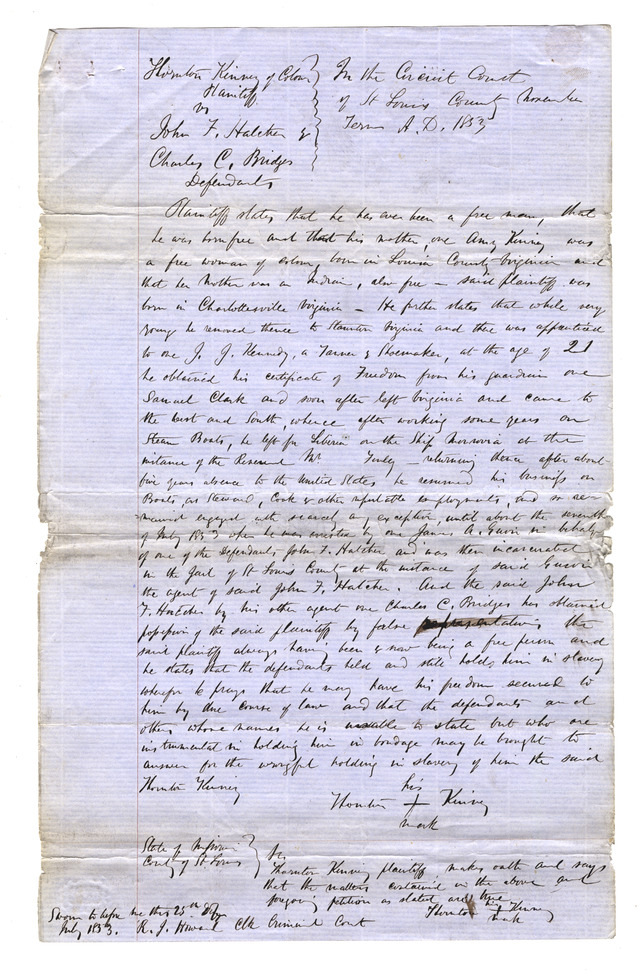 Thornton Kinney of Colour
Plaintiff
vs
John F. Hatcher &
Charles C. Bridges
Defendants
In the Circuit Court
of St Louis County November
Term A.D. 1853
Plaintiff states that he has ever been a free man, that
he was born free and that his mother, one Amy Kinney was
a free woman of colour, born in Louisa County Virginia and
that her Mother was an Indian, also free – said plaintiff was
born in Charlottesville Virginia – He further states that while very
young he removed thence to Staunton Virginia and there was apprenticed
to one J. J. Kennedy, a Tanner & Shoemaker, at the age of 21
he obtained his certificate of Freedom from his guardian one
Samuel Clark and soon after left Virginia and came to
the West and South, whence after working some years on
Steam Boats, he left for Liberia on the Ship Monrovia at the
instance of the Reverend Mr Finley – returning thence after about
five years absence to the United States, he resumed his business on
Boats, as Steward, Cook & other reputable employments, and so re-
mained engaged with scarcely an exception, until about the seventh
of July 1853 when he was arrested by one James A. Guion in behalf
of one of the Defendants John F. Hatcher and was then incarcerated
in the Jail of St Louis County at the instance of said Guion
the agent of said John F. Hatcher. And the said John
F. Hatcher by his other agent one Charles C. Bridges has obtained
possession of the said plaintiff by false representations the
said plaintiff always having been & now being a free person and
he states that the defendants held and still holds him in slavery
wherefor he prays that he may have his freedom secured to
him by due course of law and that the defendants and
others whose names he is unable to state but who are
instrumental in holding him in bondage may be brought to
answer for the wrongful holding in slavery of him the said
Thornton Kinney
his
Thornton + Kinney
mark
State of Missouri
County of St Louis } ss
Thornton Kinney plaintiff, makes oath and says
that the matters contained in the above and
foregoing petition as stated are true
his
Thornton + Kinney
mark
Sworn to before me this 25th day
July 1853. R. J. Howard Clk Criminal Court